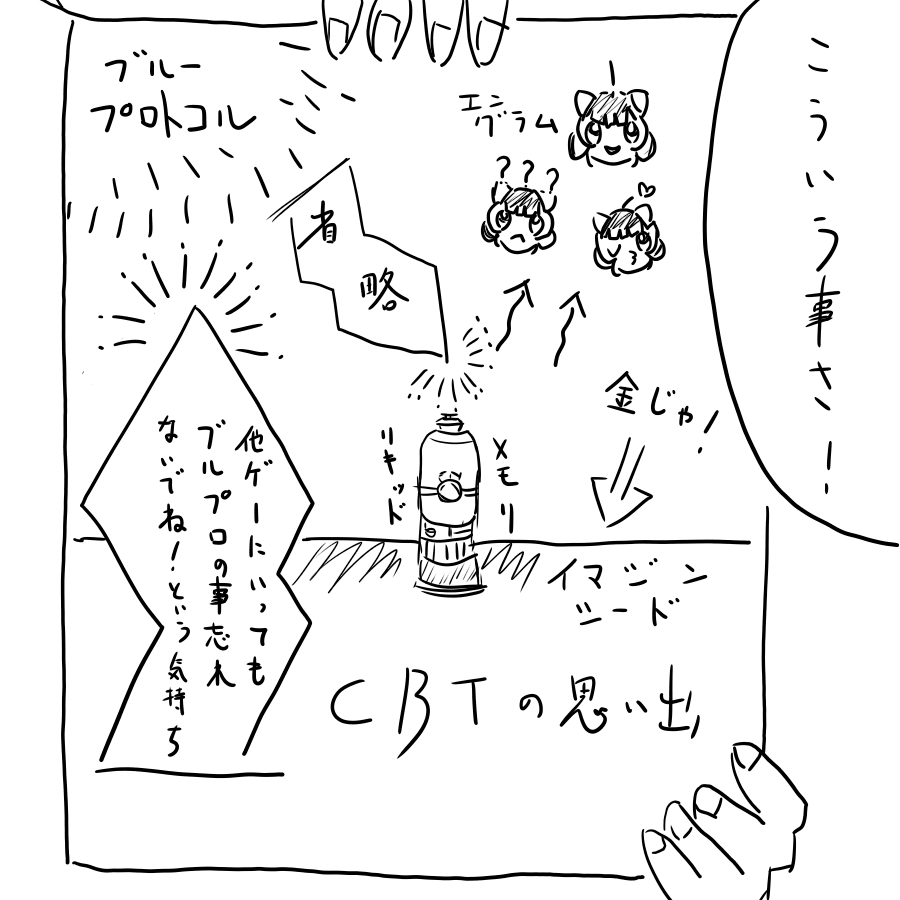 こういう事さー!
ブルー
プロトコル
エン
グラム
???
省
略
金じゃ!
メモリ
リキッド
イマジン
シード
他ゲーにいっても
ブルプロの事忘れ
ないでね!という気持ち
CBTの思い出